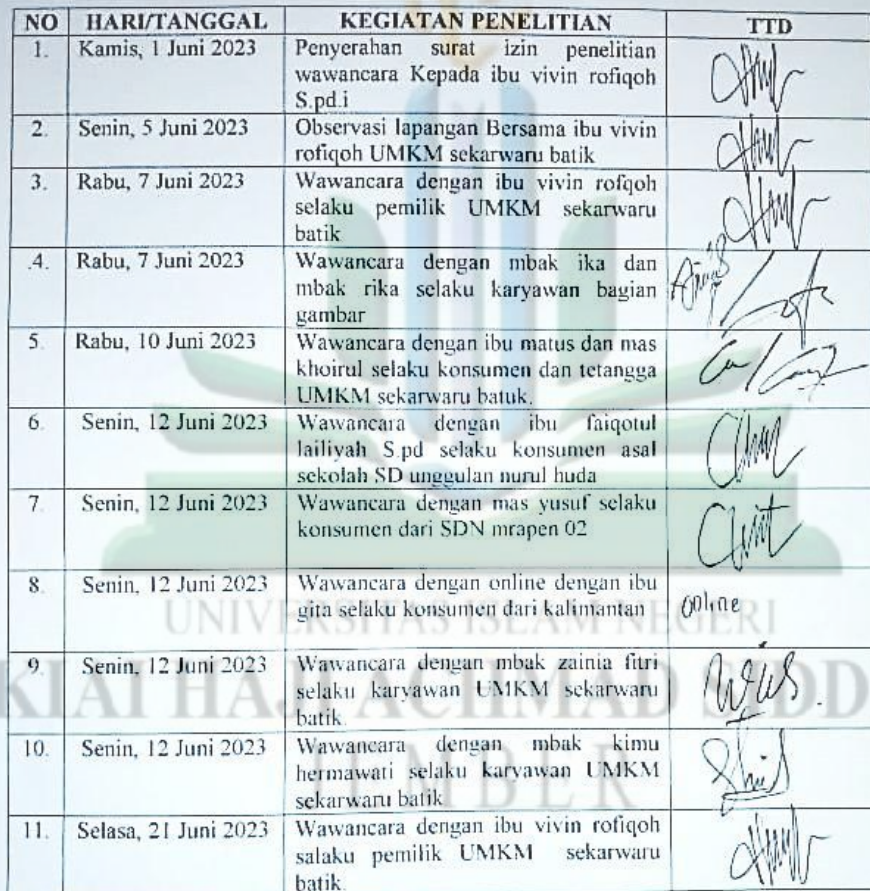 NO HARI/TANGGAL KEGIATAN PENELITIAN TTD
1. Kamis, 1 Juni 2023 Penyerahan surat izin penelitian
wawancara Kepada ibu vivin rofiqoh
S.pd.i
2. Senin, 5 Juni 2023 Observasi lapangan Bersama ibu vivin
rofiqoh UMKM sekarwaru batik
3. Rabu, 7 Juni 2023 Wawancara dengan ibu vivin rofqoh
selaku pemilik UMKM sekarwaru
batik
.4. Rabu, 7 Juni 2023 Wawancara dengan mbak ika dan
mbak rika selaku karyawan bagian
gambar
5. Rabu, 10 Juni 2023 Wawancara dengan ibu matus dan mas
khoirul selaku konsumen dan tetangga
UMKM sekarwaru batuk.
6. Senin, 12 Juni 2023 Wawancara dengan ibu faiqotul
lailiyah S.pd selaku konsumen asal
sekolah SD unggulan nurul huda
7. Senin, 12 Juni 2023 Wawancara dengan mas yusuf selaku
konsumen dari SDN mrapen 02
8. Senin, 12 Juni 2023 Wawancara dengan online dengan ibu
gita selaku konsumen dari kalimantan online
UNIVERSITAS ISLAM NEGERI
9. Senin, 12 Juni 2023 Wawancara dengan mbak zainia fitri
selaku karyawan UMKM sekarwaru
batik.
KIAI HAJI ACHMAD SIDD
10. Senin, 12 Juni 2023 Wawancara dengan mbak kimu
hermawati selaku karyawan UMKM
sekarwaru batik
JEMBER
11. Selasa, 21 Juni 2023 Wawancara dengan ibu vivin rofiqoh
salaku pemilik UMKM sekarwaru
batik.